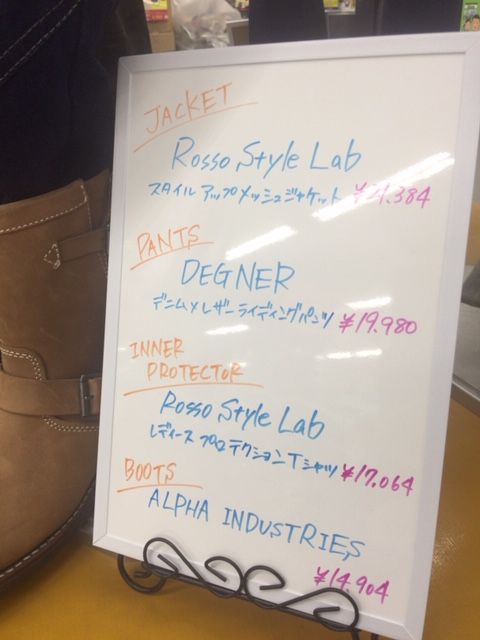 JACKET
Rosso Style Lab
スタイルアップメッシュジャケット
PANTS
DEGNER
デニム×レザーライディングパンツ ¥19.980
INNER
PROTECTOR
Rosso Style Lab
レディースプロテクションTシャツ ¥17.064
BOOTS
ALPHA INDUSTRIES
¥14.904